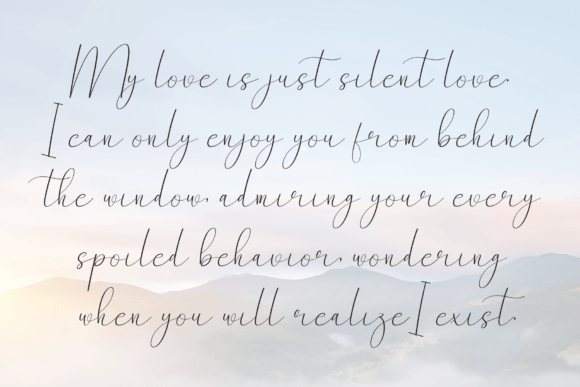 My love is just silent love.
I can only enjoy you from behind
the window, admiring your every
spoiled behavior, wondering
when you will realize I exist.